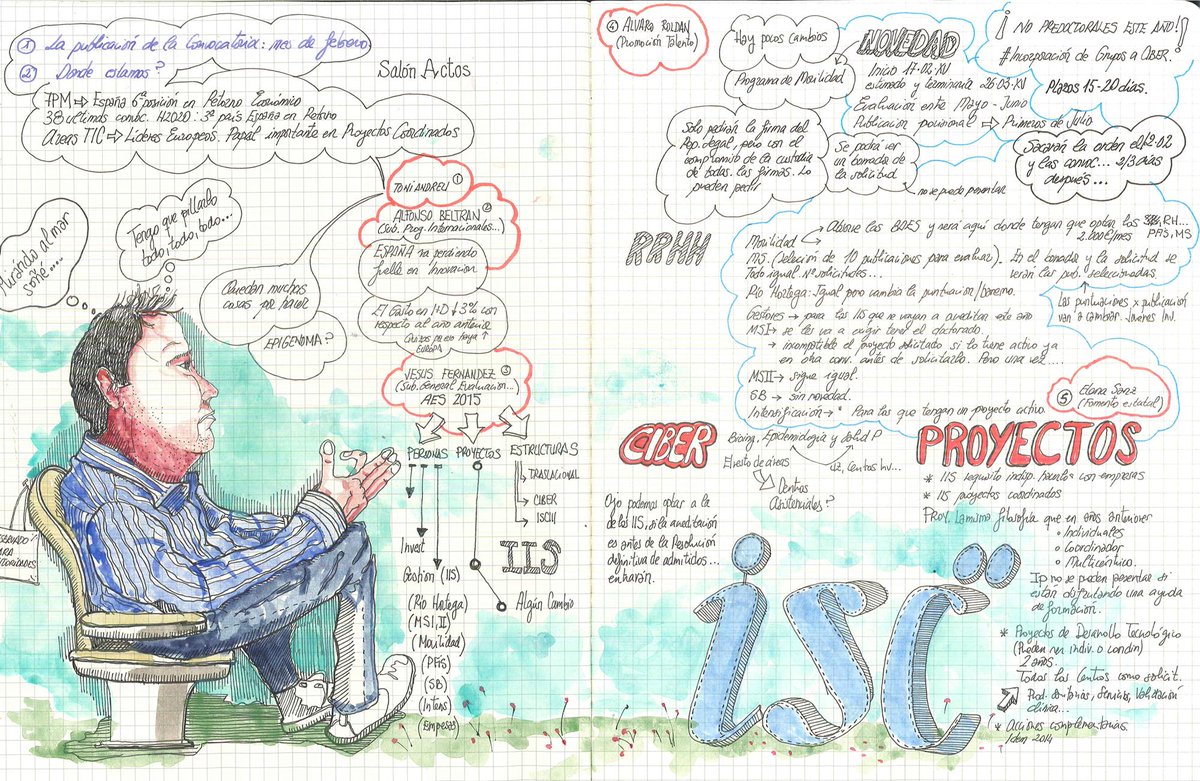 ① La publicación de la Convocatoria: mes de febrero
② Donde estamos?
Salón Actos
7PM → España 6ª posición en Retorno Económico
38 ultimas convoc. H2020: 3er país España en Retorno
Areas TIC → Líderes Europeos. Papel importante en Proyectos Coordinados
TONI ANDREU ①
ALFONSO BELTRAN ②
(Sub. Prog. Internacionales...)
ESPAÑA va perdiendo
fuelle en Innovacion
El Gasto en I+D ↓ 3% con
respecto al año anterior
EUROPA
JESUS FERNANDEZ ③
(Sub. General Evaluacion...)
AES 2015
Mirando al mar
soñé...
Tengo que pillarlo
todo, todo, todo...
Quedan muchas
cosas por hacer
EPIGENOMA?
PARA
PERSONAS
PROYECTOS
ESTRUCTURAS
TRASLACIONAL
CIBER
ISCIII
IIS
Invest
Gestión (IIS)
Algún Cambio
(Río Hortega)
(MSI, II)
(Movilidad)
(PFIS)
(SB)
(Intens)
(Empresa)
④ ALVARO ROLDAN
(Promoción Talento)
Hay pocos cambios
Programa de Movilidad
Solo pedirán la firma del
Rep. legal, pero con el
compromiso de la custodia
de todas las firmas. Lo
pueden pedir
NOVEDAD
Inicio 17-02-XV
estimado y terminaría 26-03-XV
Evaluacion entre Mayo - Junio
Publicacion provisional → Primeros de Julio
Se podrá ver
un borrador de
la solicitud
no se puede presentar
¡MAS REDACTORES ESTE AÑO!
# Incorporación de Grupos a CIBER.
Plazos 15-20 días.
Sacarán la orden el 9-12
y las convoc... 2/3 días
después...
RRHH
Movilidad
M.S. (Selección de 10 publicaciones para evaluar). En el
Todo igual Nº solicitudes...
serán las pub. seleccionadas.
Río Hortega: Igual pero cambia la puntuacion/baremo.
Gestores → para las IIS que se vayan a acreditar este año
MSI → se les va a exigir tener el doctorado.
→ incompatible el proyecto solicitado si lo tiene activo ya
en otra conv. antes de solicitarlo. Pero una vez...
MSII → sigue igual.
SB → sin novedad.
Intensificación → * Para las que tengan un proyecto activo
Las puntuaciones x publicacion
van a cambiar.
⑤ Elena Sanz
(Fomento estatal)
CIBER
Bioing, Epidemiología y Salud P
El resto de áreas
42, Centos Inv...
Centros
Asistenciales?
Ojo podemos optar a la
de las IIS, si la acreditación
es antes de la Resolución
definitiva de admitidos...
entrarán.
PROYECTOS
* IIS requisito indisp. con empresas
* IIS proyectos coordinados
PROY. La misma filosofia que en años anteriores
o Individuales
o Coordinados
o Multicéntrico.
Ip no se pueden presentar si
están disfrutando una ayuda
de formación.
* Proyectos de Desarrollo Tecnológico
(Pueden ser indiv. o coordin.)
2 años
Todos los Centros como solicit.
isciii